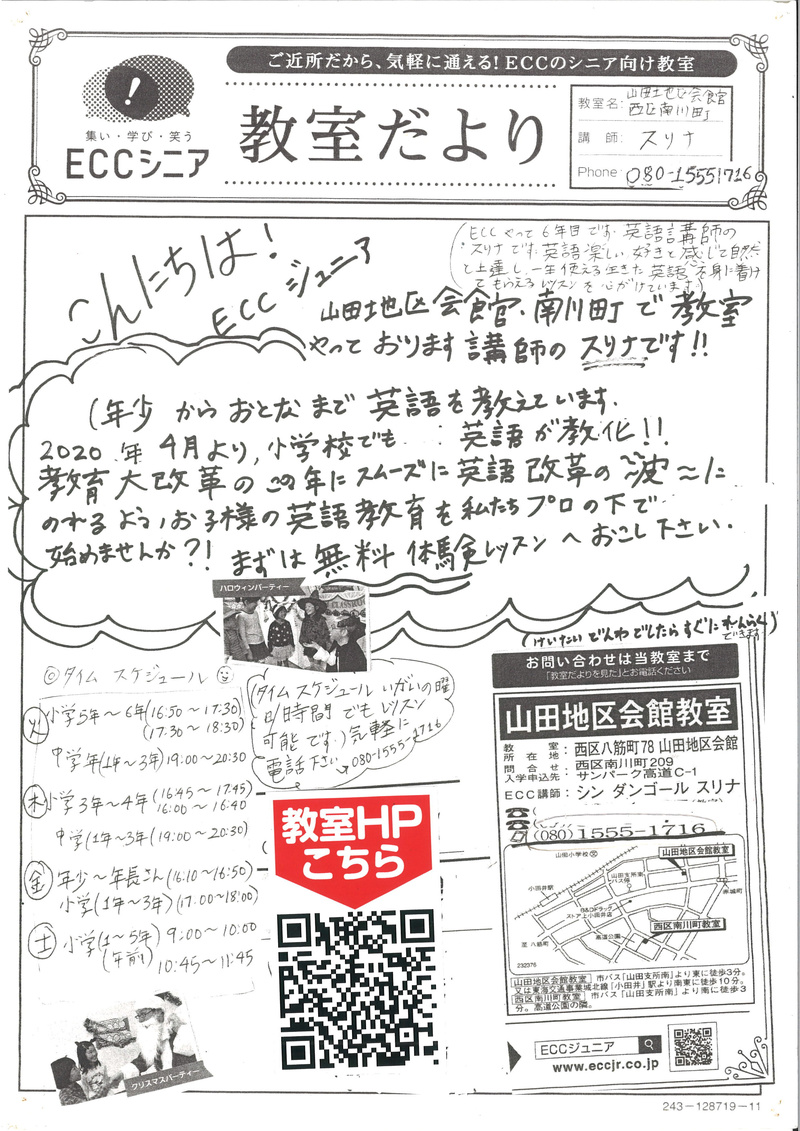 ご近所だから、気軽に通える!ECCのシニア向け教室
集い・学び・笑う
ECCシニア
教室だより
教室名: 山田地区会館
西区南川町
講師: スリナ
Phone: 080-15551716
こんにちは!
ECC ジュニア
(ECCやって6年目です。英語講師の
スリナです。英語楽しい、好きと感じて自然
と上達し、一生使える生きた英語を身に着け
てもらえるレッスンを心がけています。)
山田地区会館・南川町で教室
やっております講師のスリナです!!
(年少からおとなまで英語を教えています。
2020年4月より、小学校でも 英語が教化!!
教育大改革のこの年にスムーズに英語改革の波〜に
のれるよう、お子様の英語教育を私たちプロの下で
始めませんか?! まずは無料体験レッスンへおこし下さい。
ハロウィンパーティー
(けいたいでんわでしたらすぐにれんらくできます)
◎タイムスケジュール
火 小学5年〜6年(16:50〜17:30)
(17:30〜18:30)
中学年(1年〜3年)19:00〜20:30)
木 小学3年〜4年(16:45〜17:45)
16:00〜16:40
中学(1年〜3年(19:00〜20:30)
金 年少〜年長さん(16:10〜16:50)
小学(1年〜3年)(17:00〜18:00)
土 小学(1〜5年) 9:00〜10:00
(午前) 10:45〜11:45
(タイムスケジュールいがいの曜
日/時間でもレッスン
可能です。)気軽に
電話下さい 080-1555-1716
教室HP
こちら
クリスマスパーティー
お問い合わせは当教室まで
「教室だよりを見た」とお電話ください
山田地区会館教室
教室所在地:西区八筋町78 山田地区会館
問合せ入学申込先:西区南川町209
サンパーク高道C-1
ECC講師:シン ダンゴール スリナ
(080)1555-1716
山田小学校
山田地区会館教室
小田井駅
山田支所南
バス停
赤城町
B&Dドラッグ
ストア上小田井店
西区南川町教室
至 八筋町
高道公園
232376
山田地区会館教室 市バス「山田支所南」より東に徒歩3分。
又は東海交通事業城北線「小田井」駅より南東に徒歩10分。
西区南川町教室 市バス「山田支所南」より南に徒歩3
分。高道公園の隣。
ECCジュニア
www.eccjr.co.jp
243-128719-11